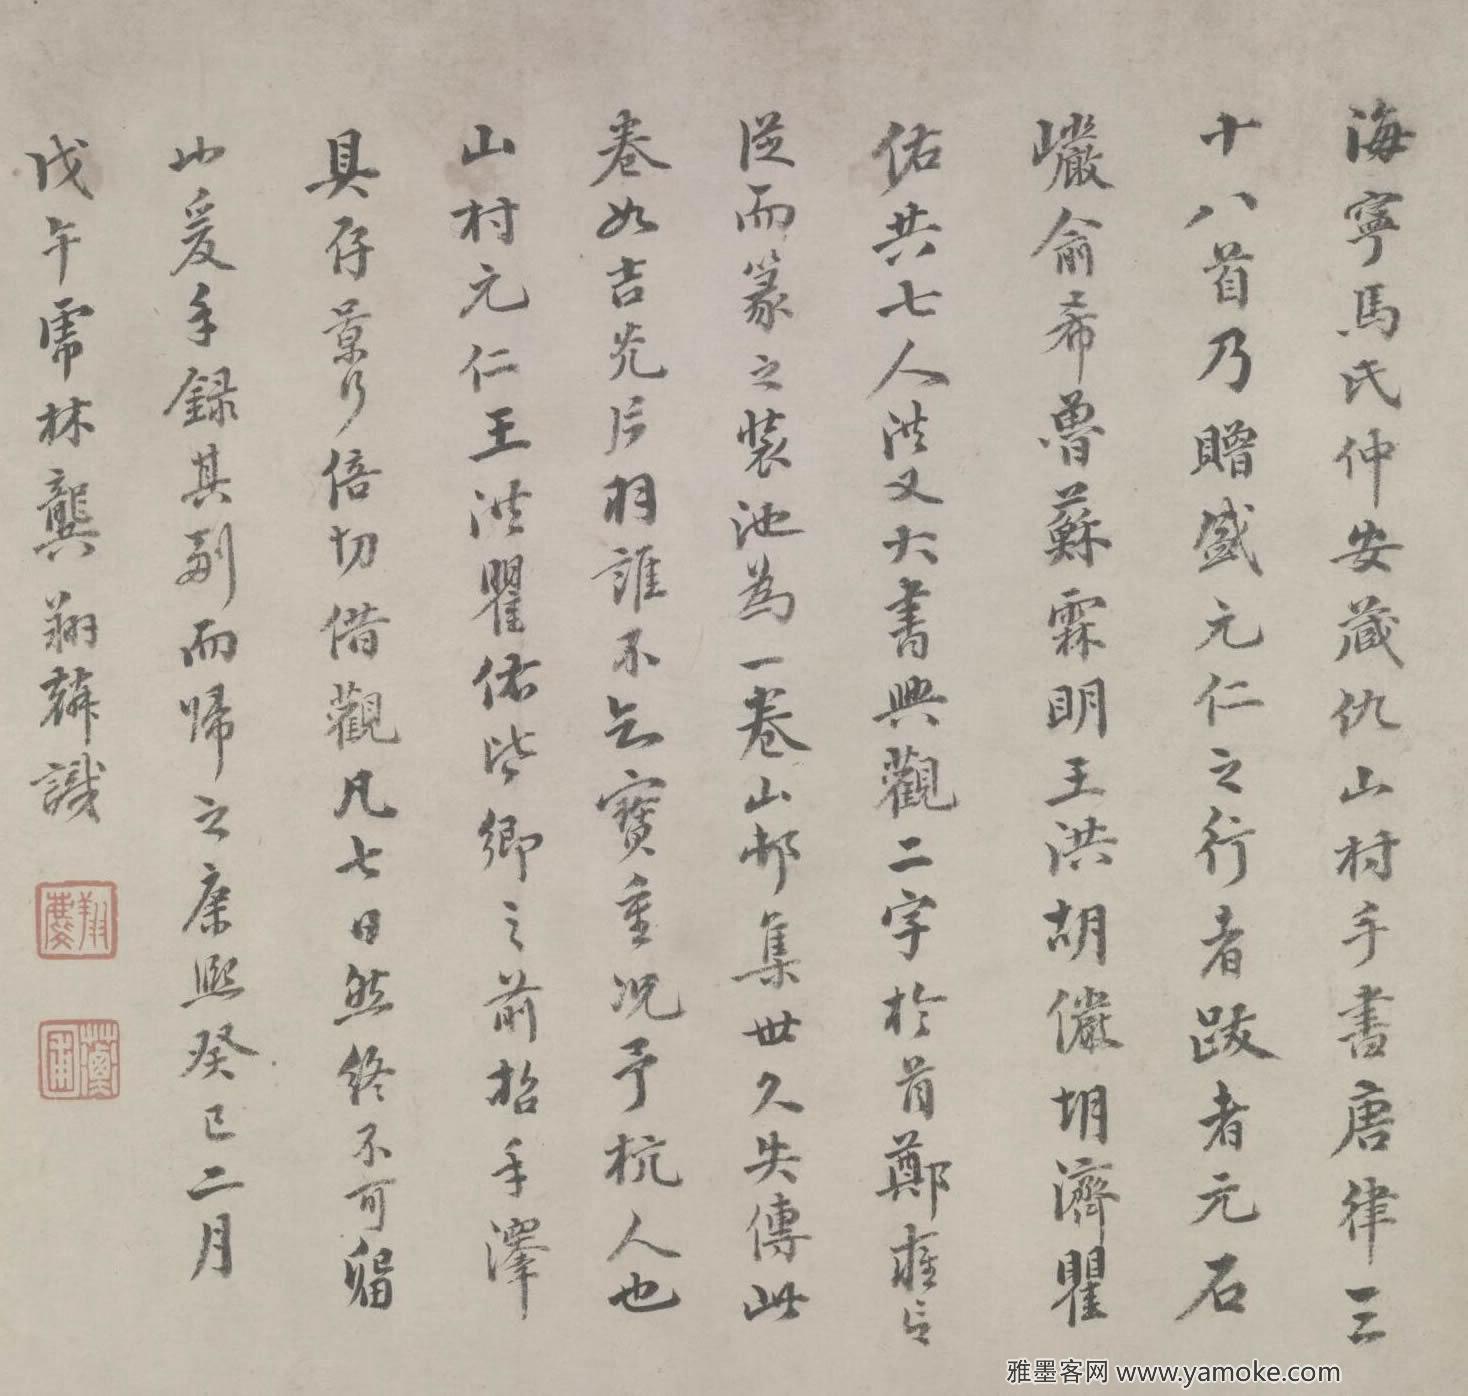 海寧馬氏仲安藏仇山村手書唐律三
十八首乃贈盛元仁之行者跋者元石
巖俞希魯蘇霖明王洪胡儼胡濟瞿
佑共七人洪又大書興觀二字於首鄭雍言
從而篆之裝池為一卷山邨集世久失傳此
卷如吉光片羽誰不知寶重况予杭人也
山村元仁王洪瞿佑皆鄉之前招手澤
具存景行倍切借觀凡七日然終不可留
也爰手録其副而歸之康熙癸巳二月
戊午雩林龔翔麟識
雅墨客网 www.yamoke.com